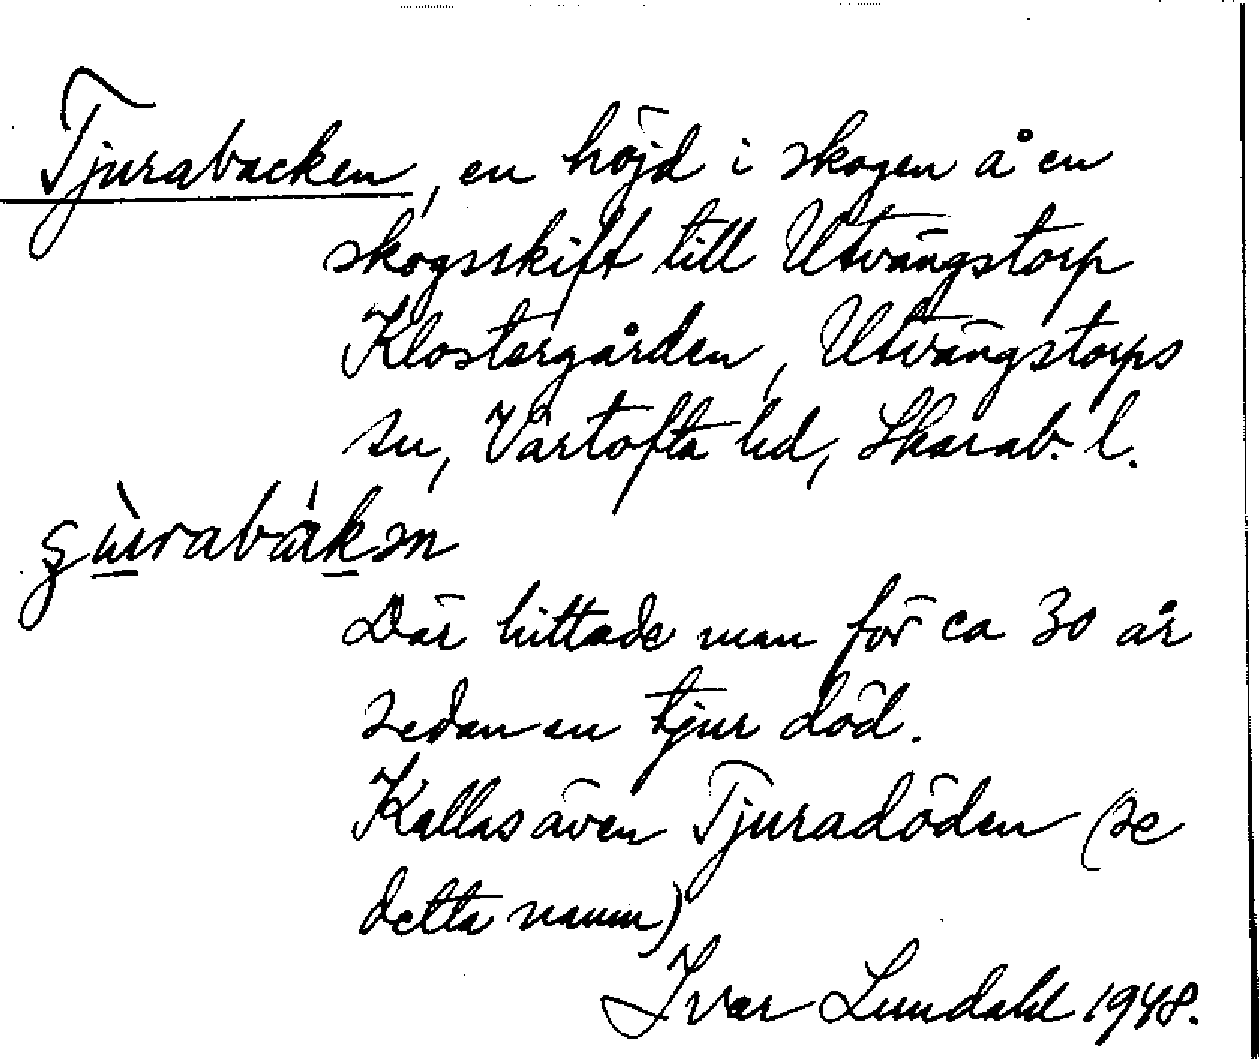 Tjurabacken, en höjd i skogen å en
skogsskift till Utvängstorp
Klostergården, Utvängstorps
sn, Vartofta hd, Skarab. l.
Där hittade man för ca 30 år
sedan en tjur död.
Kallas även Tjuradöden (se
detta namn)
Ivar Lundahl 1948.